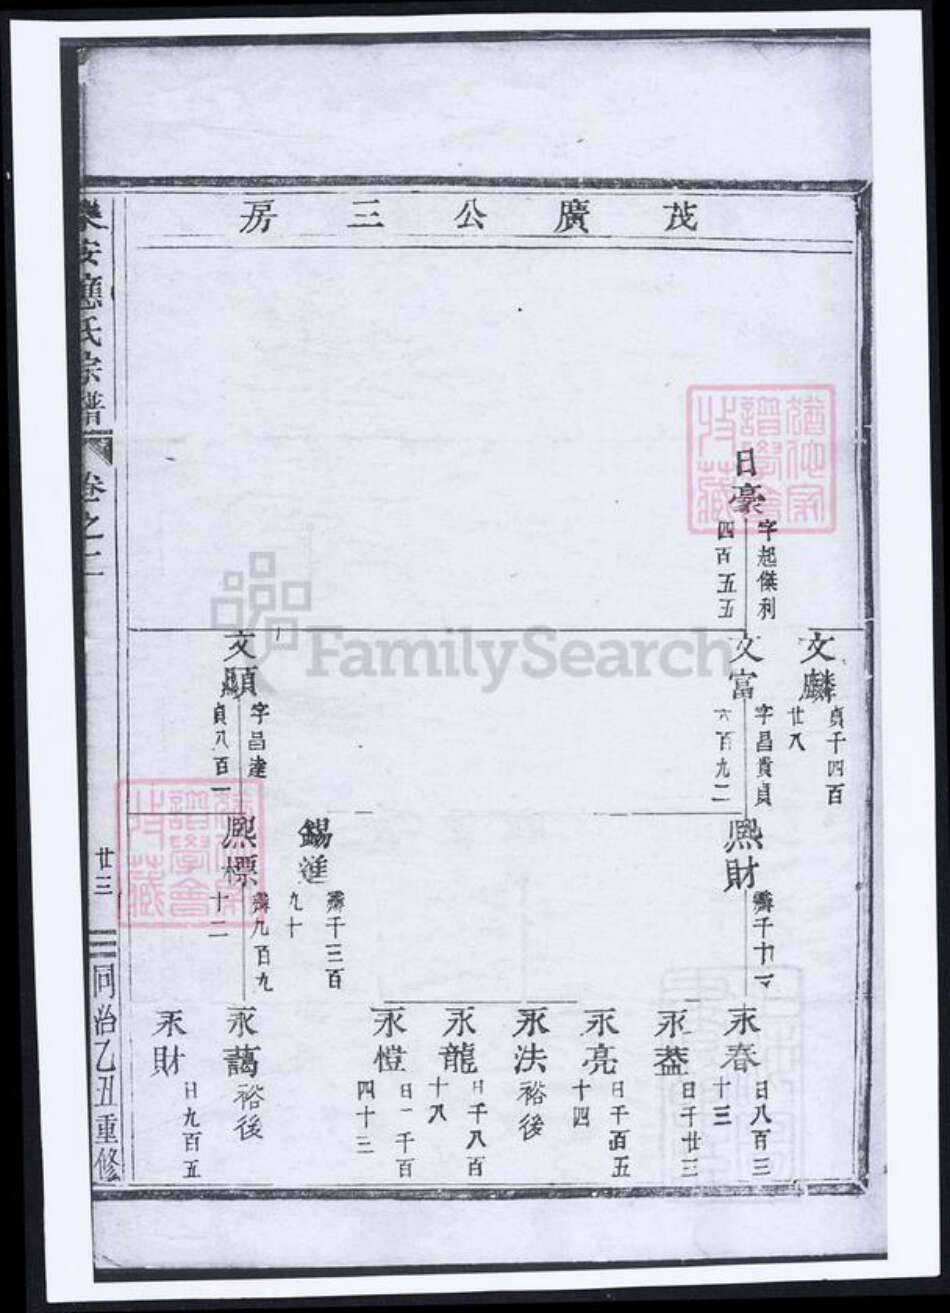 茂廣公三房
日豪
字起傑利
四百五五
文麟
貞千四百
廿八
文富
字昌貴貞
六百九二
文顯
字昌達
貞八百一
熈財
錫
千三百
九十
熈標
九百九
十二
永春
日八百三
十三
永葢
日千廿三
永亮
日千百五
十四
永法
裕後
永龍
日千八百
十八
永愷
日一千百
四十三
永藹
裕後
永財
日九百五
樂安應氏宗譜
卷之二
廿三
同治乙丑重修
譜學會
收藏
譜學會
收藏
FamilySearch